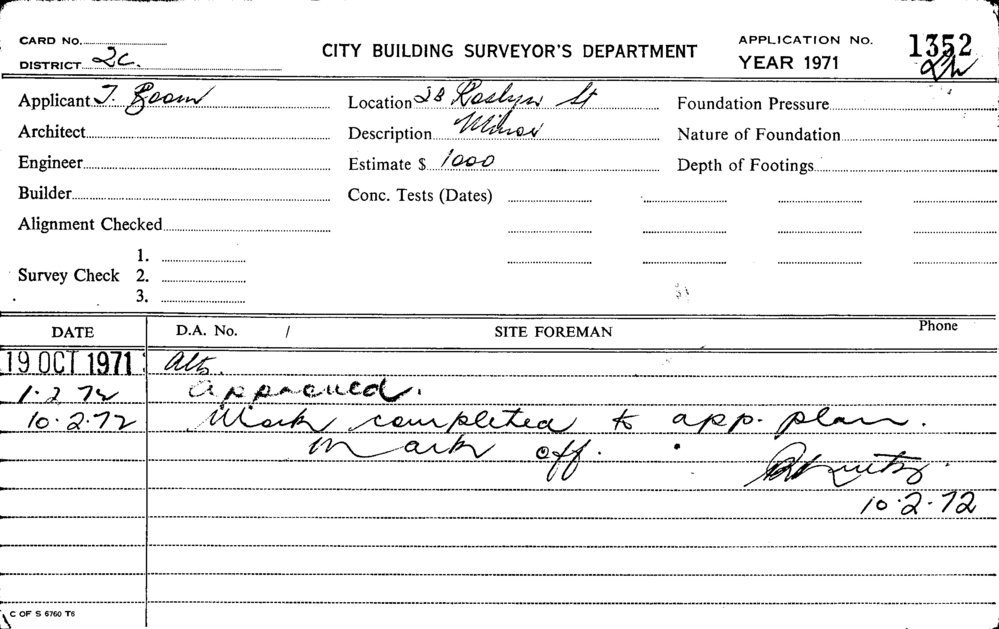 CARD No.
CITY BUILDING SURVEYOR'S DEPARTMENT
APPLICATION No. 1352
DISTRICT 2C.
YEAR 1971
Applicant J.
Location 28 Roslyn St
Foundation Pressure
Architect
Description Minor
Nature of Foundation
Engineer
Estimate $ 1000
Depth of Footings
Builder
Conc. Tests (Dates)
Alignment Checked
1.
Survey Check 2.
3.
DATE D.A. No. / SITE FOREMAN Phone
19 OCT 1971 Alts.
1.2.72 approved.
10.2.72 Work completed to app. plan.
Mark off.
10.2.72
C OF S 6760 T6